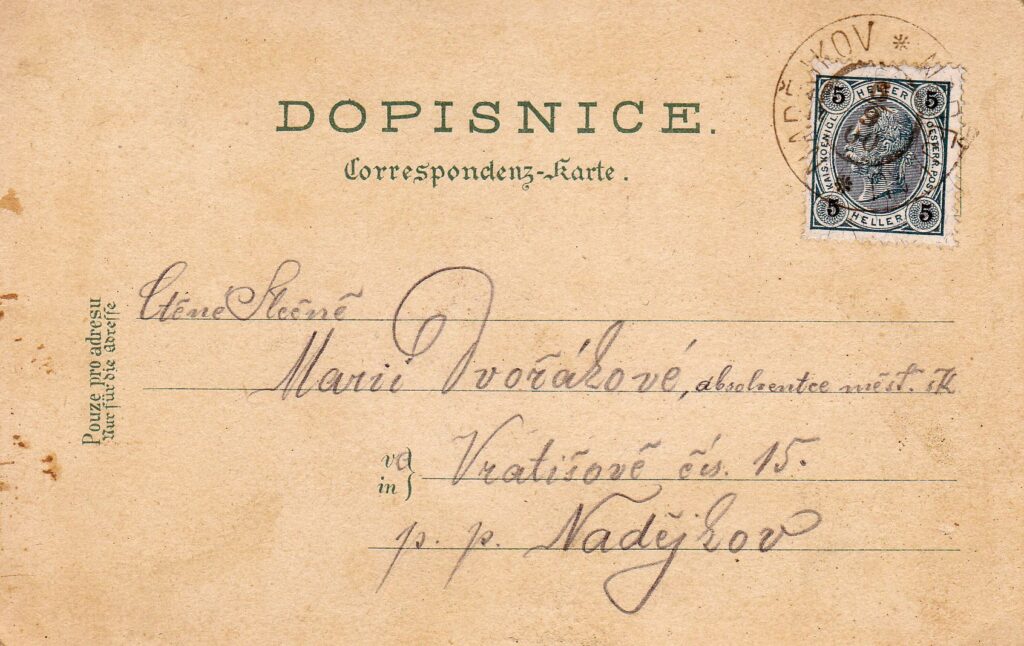 DOPISNICE.
Correspondenz-Karte.
5 HELLER 5
KAIS. KOENIGL. OESTERR. POST.
5 HELLER 5
Pouze pro adresu
Nur für die Adresse
Ctěné Slečně
Marii Dvořákové, absolventce měšť. šk
v
in
Vratišově čís. 15.
p. p. Nadějkov